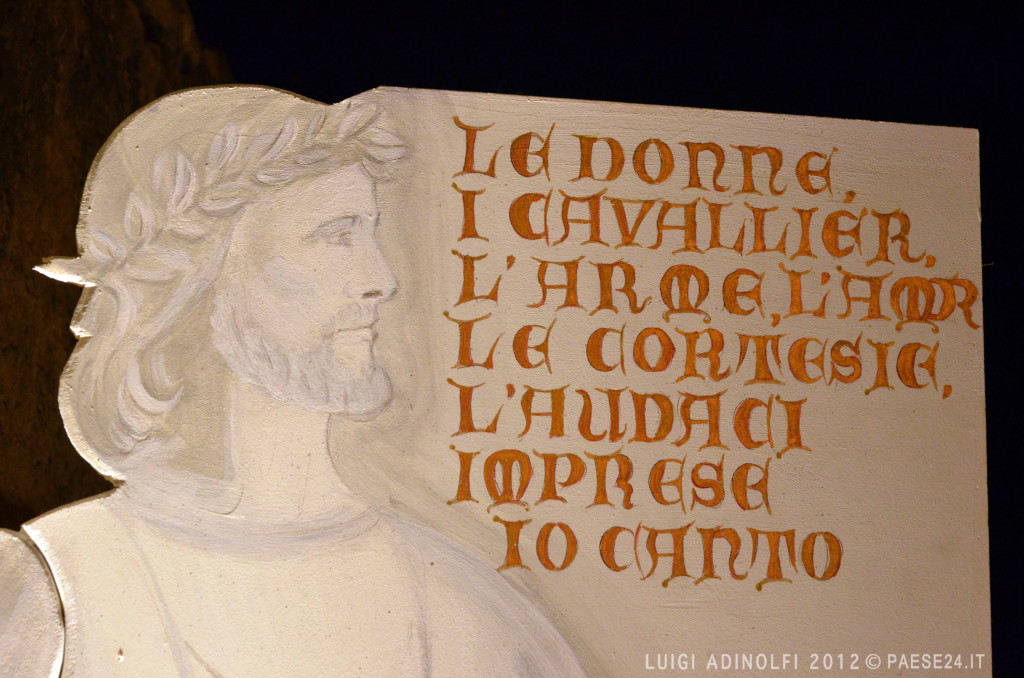 LE DONNE,
I CAVALLIÉR,
L'ARME, L'AMOR
LE CORTESIE,
L'AUDACI
IMPRESE
IO CANTO
LUIGI ADINOLFI 2012 © PAESE24.IT